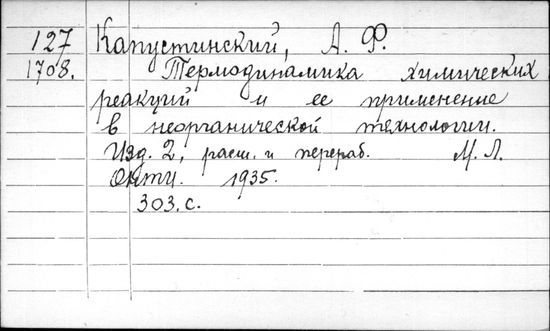 127 Капустинский, А. Ф.
1708. Термодинамика химических
реакций и ее применение
в неорганической технологии.
Изд. 2, расш. и перераб. М. Л.
Онти. 1935.
303.с.